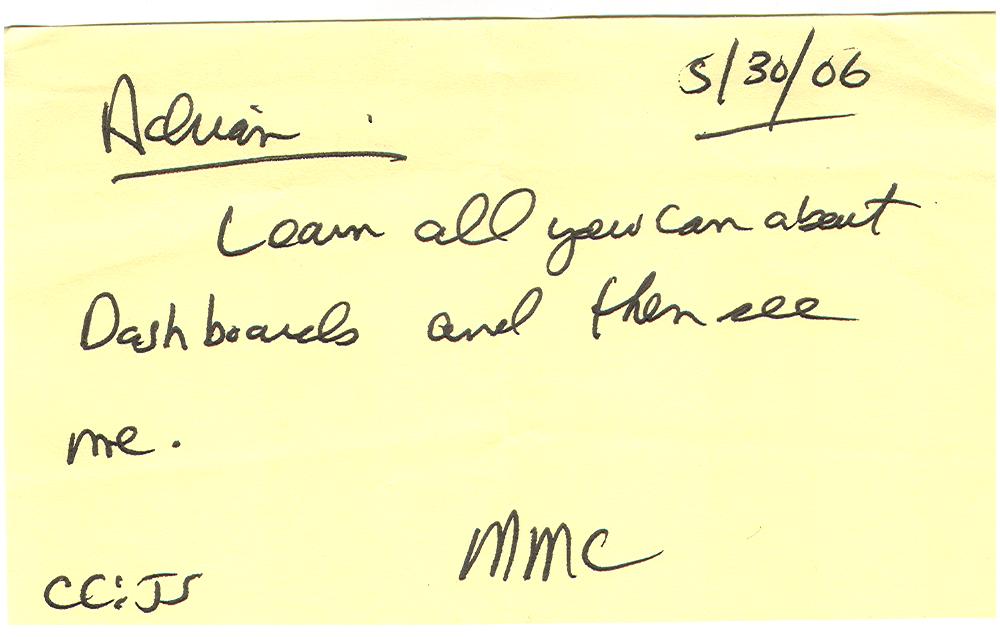 5/30/06
Adrian
Learn all you can about
Dashboards and then see
me.
MMC
CC: JS